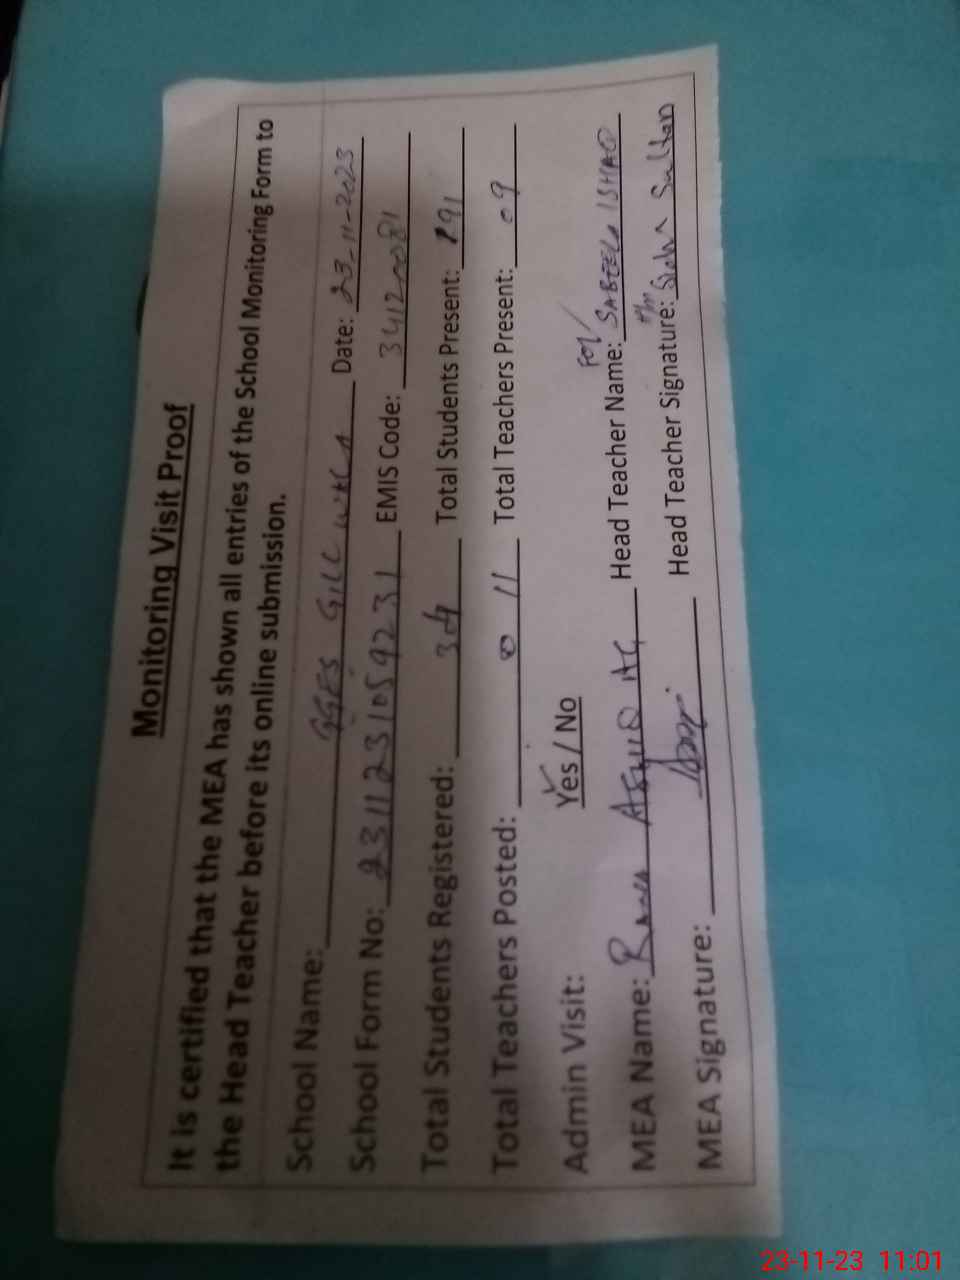 Monitoring Visit Proof
It is certified that the MEA has shown all entries of the School Monitoring Form to
the Head Teacher before its online submission.
School Name: GGES GILL WALA Date: 23-11-2023
School Form No: 2311231059231 EMIS Code: 34120081
Total Students Registered: Total Students Present: 291
Total Teachers Posted: 11 Total Teachers Present: 09
Admin Visit: Yes / No
For/
MEA Name: Rana Head Teacher Name: SABEELA ISHAQ
MEA Signature: Head Teacher Signature: Sultan
23-11-23 11:01